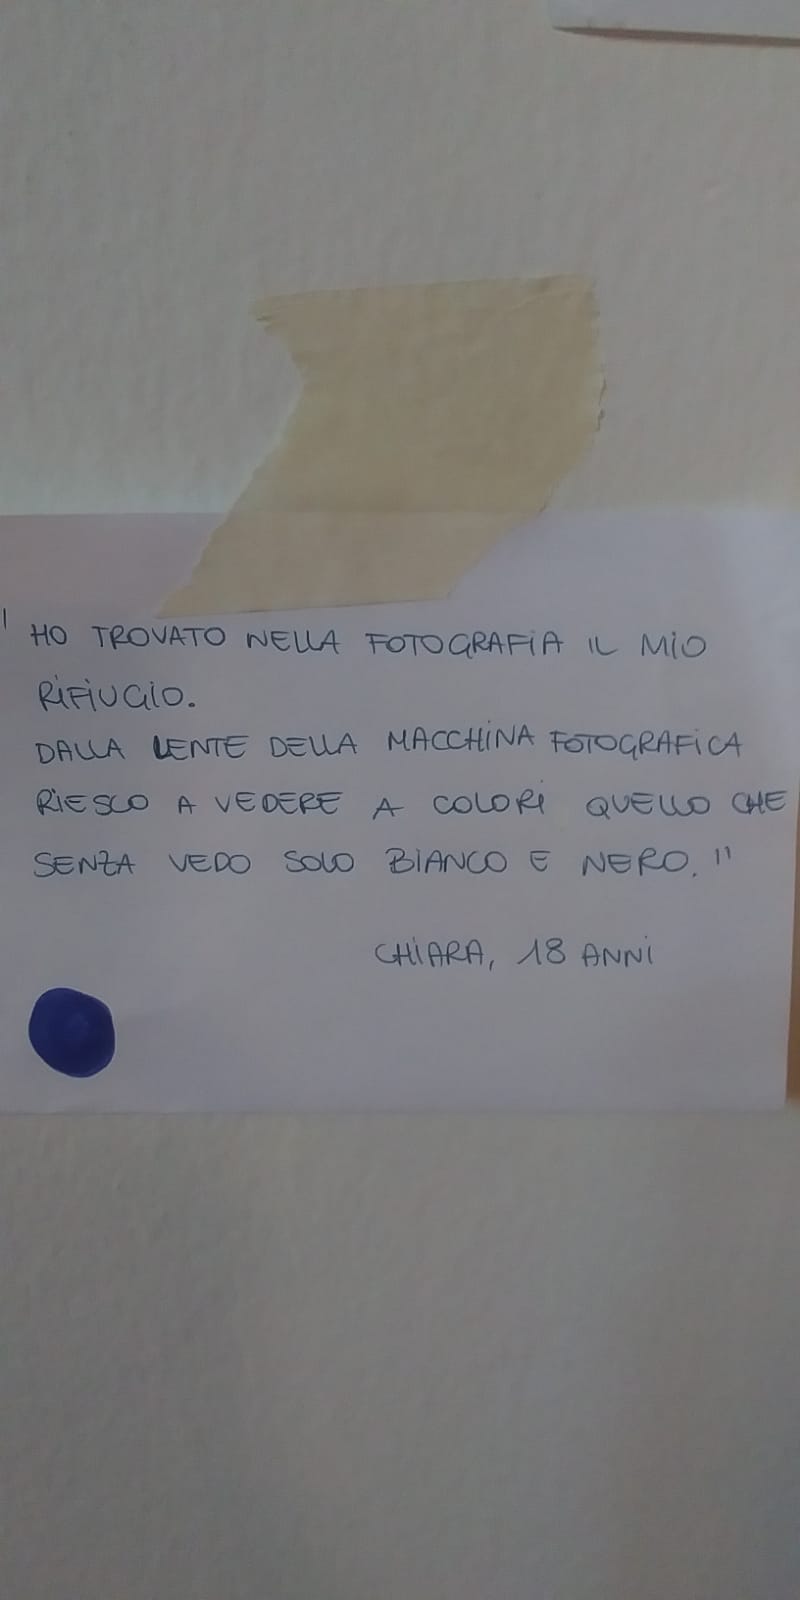 " HO TROVATO NELLA FOTOGRAFIA IL MIO
RIFIUGIO.
DALLA LENTE DELLA MACCHINA FOTOGRAFICA
RIESCO A VEDERE A COLORI QUELLO CHE
SENZA VEDO SOLO BIANCO E NERO."
CHIARA, 18 ANNI